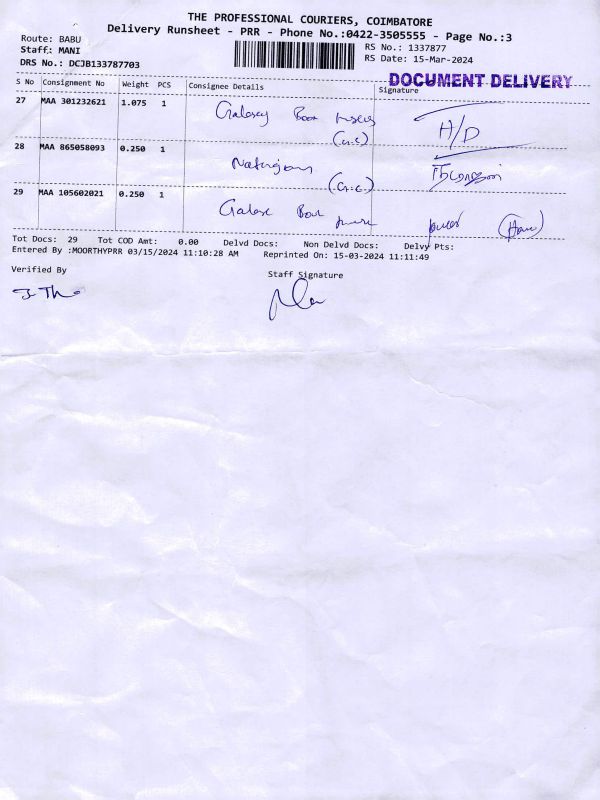 THE PROFESSIONAL COURIERS, COIMBATORE
Delivery Runsheet - PRR - Phone No.:0422-3505555 - Page No.:3
Route: BABU
RS No.: 1337877
Staff: MANI
RS Date: 15-Mar-2024
DRS No.: DCJB133787703
DOCUMENT DELIVERY
S No Consignment No Weight PCS Consignee Details Signature
27 MAA 301232621 1.075 1
H/D
28 MAA 865058093 0.250 1
29 MAA 105602021 0.250 1
Tot Docs: 29 Tot COD Amt: 0.00 Delvd Docs: Non Delvd Docs: Delvy Pts:
Entered By :MOORTHYPRR 03/15/2024 11:10:28 AM Reprinted On: 15-03-2024 11:11:49
Verified By
Staff Signature